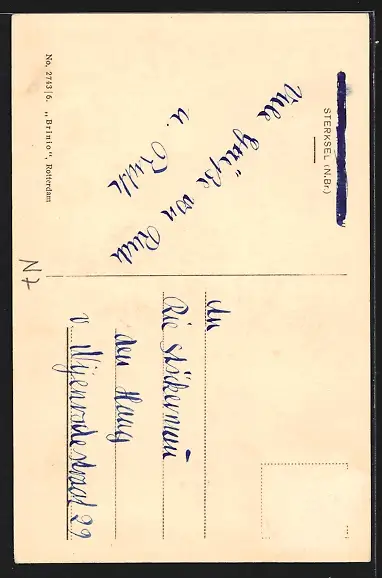 STERKSEL (N.Br.)
Viele Grüße von Rudi
u. Ruth
No. 2743|6. „Brinio", Rotterdam
An
Rie Stökermann
den Haag
v Nijenrodestraat 29
N7